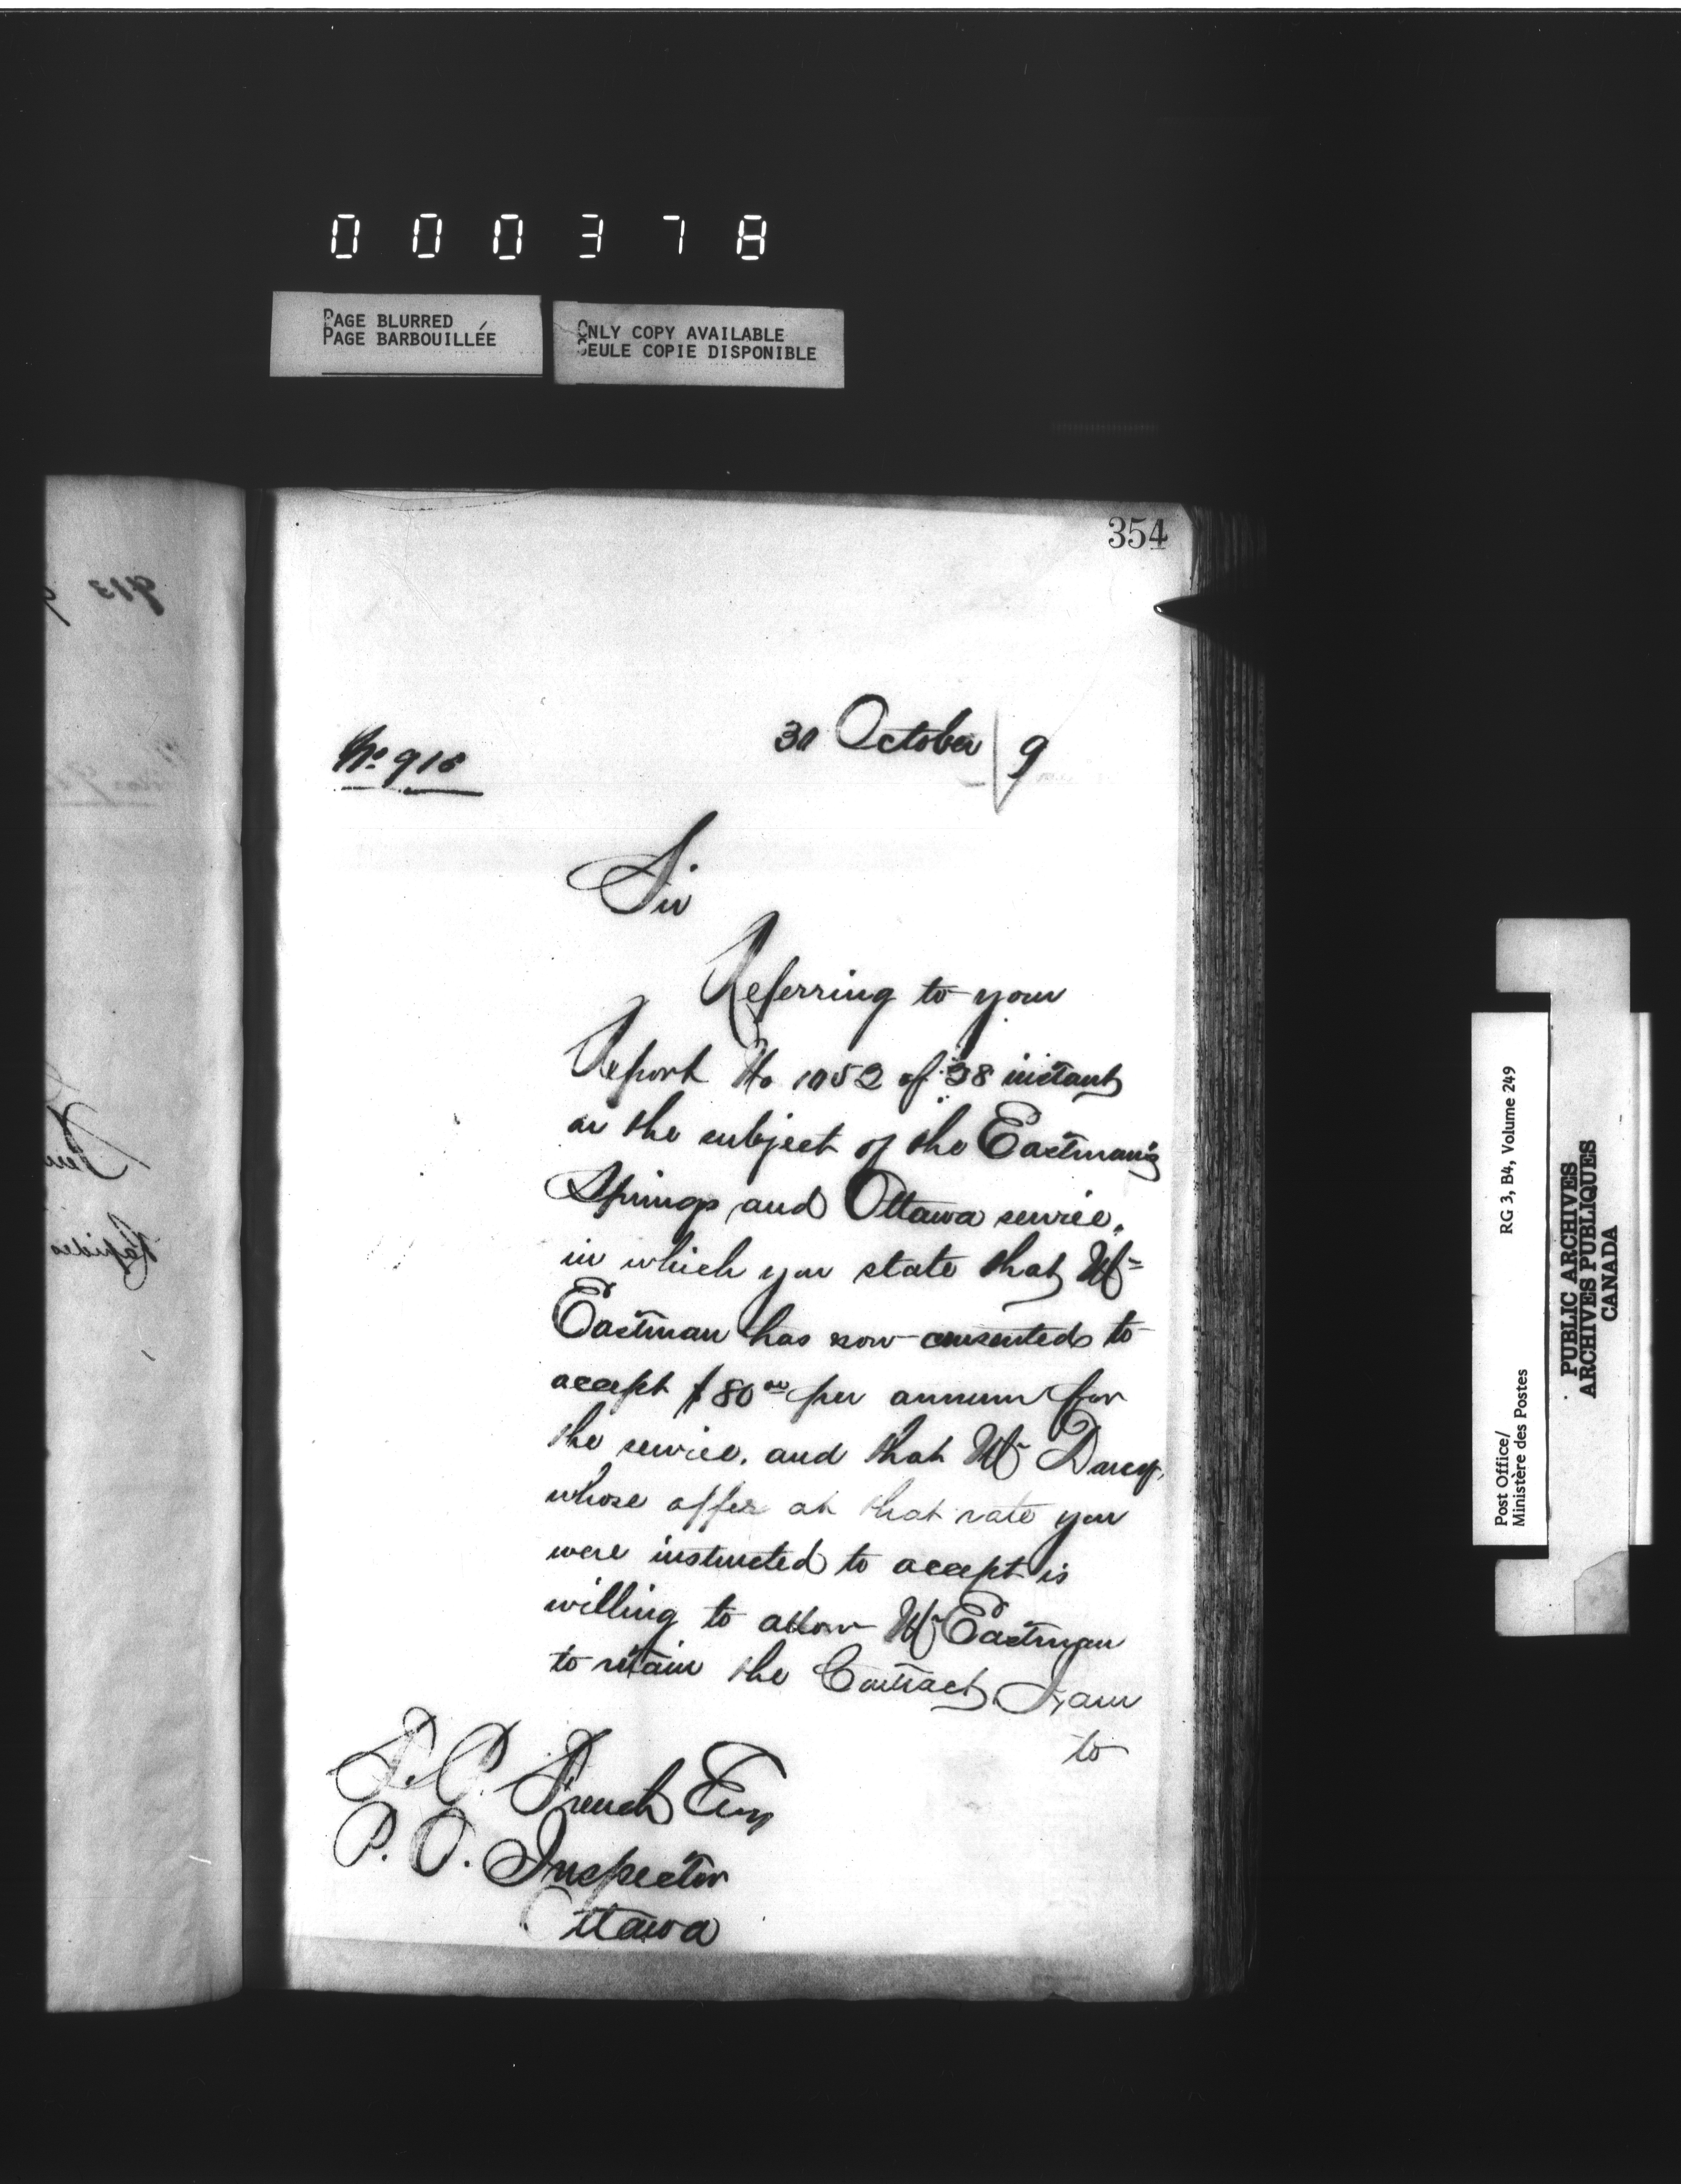 000378
PAGE BLURRED
PAGE BARBOUILLÉE
ONLY COPY AVAILABLE
SEULE COPIE DISPONIBLE
354
913
30 October / 9
No. 918
Sir
Referring to your
Report No 1052 of 28 instant
on the subject of the Eastman's
Springs and Ottawa service,
in which you state that Mr
Eastman has now consented to
accept $80 00 per annum for
the service, and that Mr Darcy,
whose offer at that rate you
were instructed to accept is
willing to allow Mr Eastman
to retain the Contract, I am
to
French Esq
P. O. Inspector
Ottawa
Post Office/
Ministère des Postes
RG 3, B4, Volume 249
PUBLIC ARCHIVES
ARCHIVES PUBLIQUES
CANADA